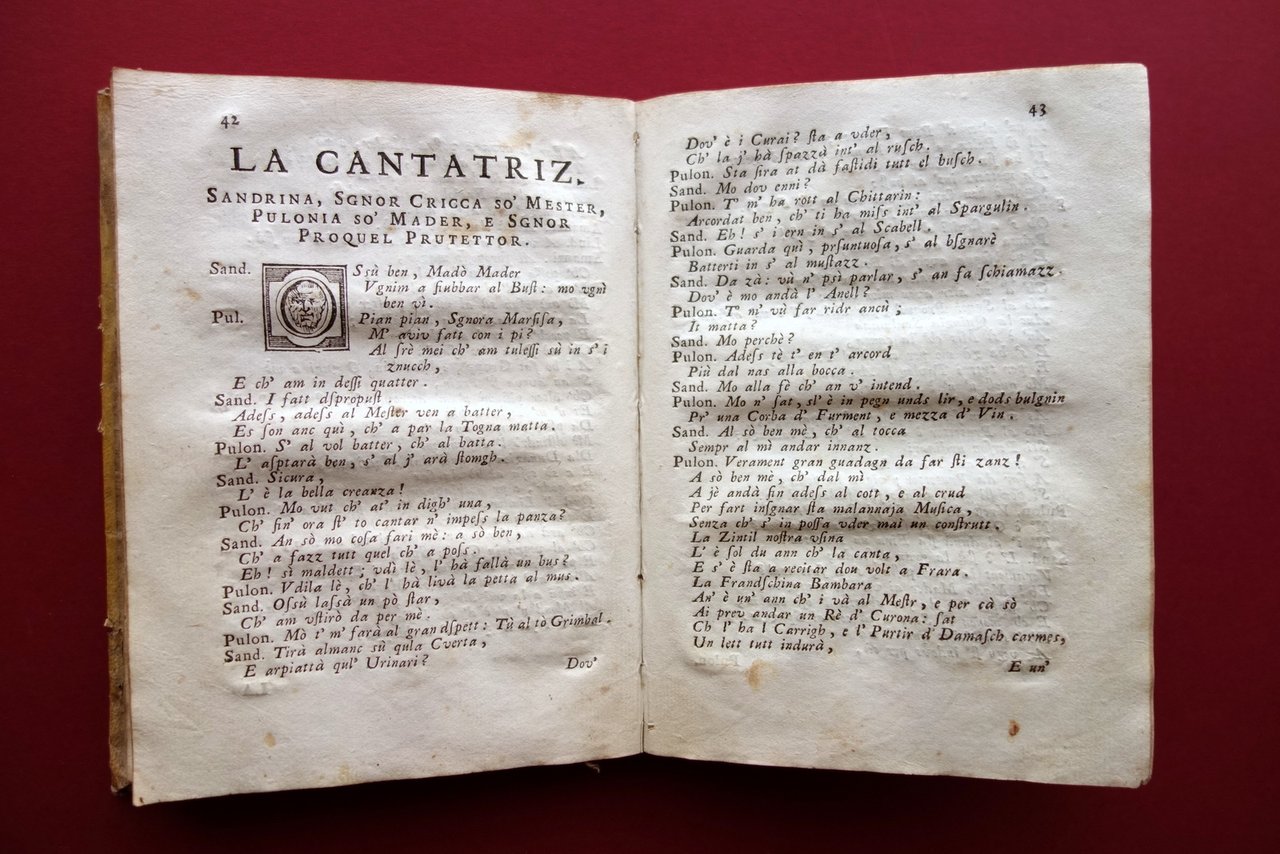 42
LA CANTATRIZ.
SANDRINA, SGNOR CRICCA SO' MESTER,
PULONIA SO' MADER, E SGNOR
PROQUEL PRUTETTOR.
Sand. OSsù ben, Madò Mader
Vgnim a fiubbar al Buſt: mo vgnì
ben vì.
Pul. Pian pian, Sgnora Marfiſa,
M' aviv fatt con i pi?
Al ſrè mei ch' am tuleſſi sù in s' i
znucch,
E ch' am in deſſi quatter.
Sand. I fatt dſpropuſt.
Adeſs, adeſs al Meſter ven a batter,
Es ſon anc quì, ch' a par la Togna matta.
Pulon. S' al vol batter, ch' al batta.
L' aſptarà ben, s' al j' arà ſtomgh.
Sand. Sicura,
L' è la bella creanza!
Pulon. Mo vut ch' at' in digh' una,
Ch' fin' ora ſt' to cantar n' impeſs la panza?
Sand. An sò mo coſa fari mè: a sò ben,
Ch' a fazz tutt quel ch' a poſs.
Eh! sì maldett; vdì lè, l' hà fallà un bus?
Pulon. Vdila lè, ch' l' hà livà la petta al mus.
Sand. Oſsù laſsà un pò ſtar,
Ch' am vſtirò da per mè.
Pulon. Mò t' m' farà al gran dſpett: Tù al tò Grimbal.
Sand. Tirà almanc sù qula Cverta,
E arpiattà qul' Urinari?
Dov'
43
Dov' è i Curai? ſta a vder,
Ch' la j' hà ſpazzà int' al ruſch.
Pulon. Sta ſira at dà faſtidi tutt el buſch.
Sand. Mo dov enni?
Pulon. T' m' ha rott al Chittarin:
Arcordat ben, ch' ti ha miſs int' al Spargulin.
Sand. Eh! s' i ern in s' al Scabell.
Pulon. Guarda quì, prſuntuoſa, s' al bſgnarè
Batterti in s' al muſtazz.
Sand. Da zà: vù n' psì parlar, s' an fa ſchiamazz.
Dov' è mo andà l' Anell?
Pulon. T' m' vù far ridr ancù;
It matta?
Sand. Mo perchè?
Pulon. Adeſs tè t' en t' arcord
Più dal nas alla bocca.
Sand. Mo alla fè ch' an v' intend.
Pulon. Mo n' ſat, sl' è in pegn unds lir, e dods bulgnin
Pr' una Corba d' Furment, e mezza d' Vin.
Sand. Al sò ben mè, ch' al tocca
Sempr al mì andar innanz.
Pulon. Verament gran guadagn da far ſti zanz!
A sò ben mè, ch' dal mì
A jè andà fin adeſs al cott, e al crud
Per fart inſgnar ſta malannaja Muſica,
Senza ch' s' in poſſa vder mai un conſtrutt.
La Zintil noſtra vſina
L' è ſol du ann ch' la canta,
E s' è ſta a recitar dou volt a Frara.
La Frandſchina Bambara
An' è un' ann ch' i và al Meſtr, e per cà sò
Ai prev andar un Rè d' Curona: ſat
Ch l' ha l Carrigh, e l' Purtir d' Damaſch carmes,
Un lett tutt indurà,
E un'